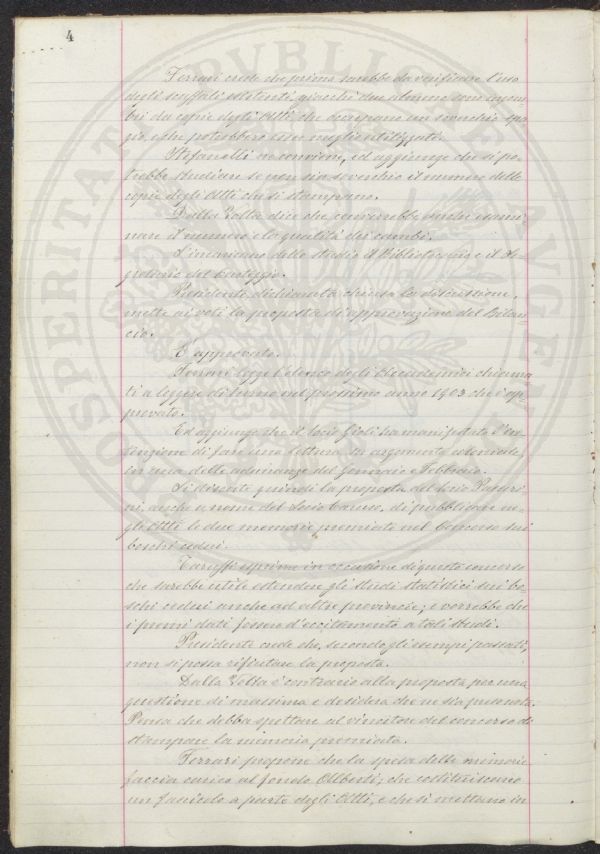 4
Ferrari crede che prima sarebbe da verificare l'uso
degli scaffali esistenti, giacchè due almeno sono ingom-
bri da copie degli Atti, che occupano un soverchio spa-
zio, e che potrebbero esser meglio utilizzati.
Stefanelli ne conviene, ed aggiunge che si po-
trebbe studiare se non sia soverchio il numero delle
copie degli Atti che si stampano.
Dalla Volta dice che converrebbe anche esami-
nare il numero e la qualità dei cambi.
S'incaricano dello studio il Bibliotecario e il Se-
gretario del Carteggio.
Presidente dichiarata chiusa la discussione,
mette ai voti la proposta di approvazione del Bilan-
cio.
È approvato.
Ferrari legge l'elenco degli Accademici chiama-
ti a leggere di turno nel prossimo anno 1903 che è ap-
provato.
Ed aggiunge che il Socio Gioli ha manifestato l'in-
tenzione di fare una lettura su argomento coloniale,
in una delle adunanze del Gennaio e Febbraio.
Si discute quindi la proposta del socio Passeri-
ni, anche a nome del Socio Caruso, di pubblicare ne-
gli Atti le due memorie premiate nel Concorso sui
boschi cedui.
Taruffi esprime in occasione di questo concorso
che sarebbe utile estendere gli studi statistici sui bo-
schi cedui anche ad altre provincie; e vorrebbe che
i premi dati fossero d'eccitamento a tali studi.
Presidente crede che, secondo gli esempi passati,
non si possa rifiutare la proposta.
Dalla Volta è contrario alla proposta per una
questione di massima e desidera che ne sia
Pensa che debba spettare al vincitore del concorso di
stampare la memoria premiata.
Ferrari propone che la spesa delle memorie
faccia carico al fondo Alberti; che costituiscano
un fascicolo a parte degli Atti, e che si mettano in
PROSPERITATI PVBLICAE AVGENDAE